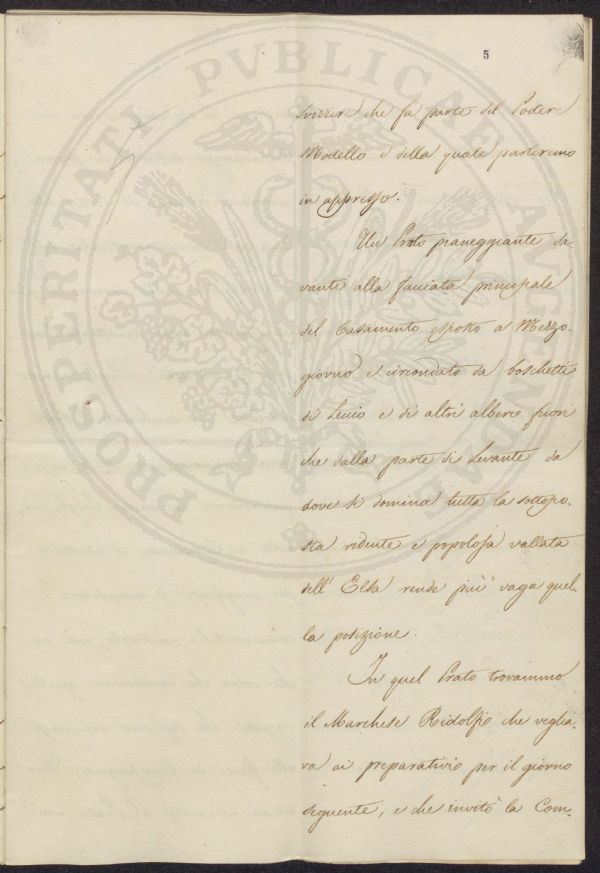 5
svizzere che fa parte del Podere
Modello e della quale parleremo
in appresso.
Un Prato pianeggiante da-
vante alla facciata principale
del Casamento esposto a Mezzo-
giorno e circondato da boschetti
di Leccio e di altri alberi fuori
che dalla parte di Levante da
dove si domina tutta la sottopo-
sta ridente e popolosa vallata
dell' Elsa rende più vaga quel-
la posizione.
In quel Prato trovammo
il Marchese Ridolfi che veglia-
va ai preparativi per il giorno
seguente, e che invitò la Com-
PROSPERITATI PVBLICAE AVGENDAE